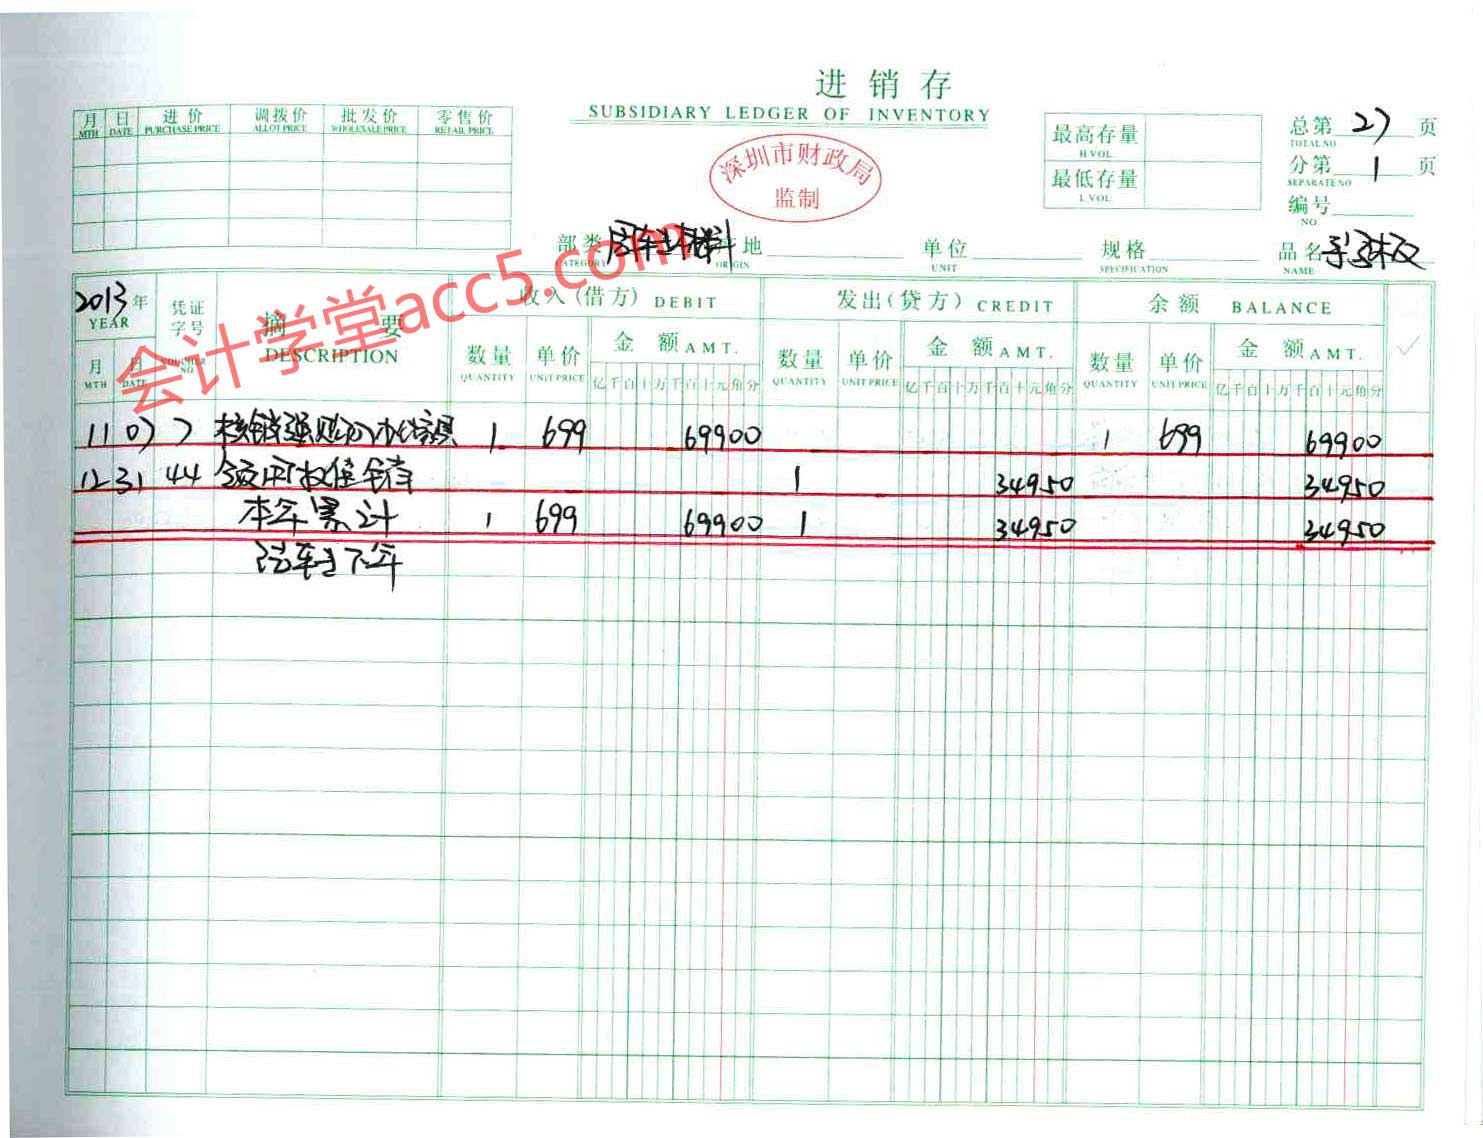 进销存
SUBSIDIARY LEDGER OF INVENTORY
月 日 进价 调拨价 批发价 零售价
MTH DATE PURCHASE PRICE ALLOT PRICE WHOLESALE PRICE RETAIL PRICE
最高存量
H.VOL
最低存量
L.VOL
总第 27 页
TOTAL NO
分第 1 页
SEPARATE NO
编号
NO.
深圳市财政局
监制
部类 产地 单位 规格 品名
CATEGORY ORIGIN UNIT SPECIFICATION NAME
2013年 凭证字号 摘要 收入(借方) DEBIT 发出(贷方) CREDIT 余额 BALANCE
YEAR VOUCHER NO. DESCRIPTION
月 日 数量 单价 金额 AMT. 数量 单价 金额 AMT. 数量 单价 金额 AMT.
MTH DATE QUANTITY UNIT PRICE QUANTITY UNIT PRICE QUANTITY UNIT PRICE
亿千百十万千百十元角分 亿千百十万千百十元角分 亿千百十万千百十元角分
11 07 7 1 699 69900 1 699 69900
12 31 44 领用 1 34950 34950
本年累计 1 699 69900 1 34950 34950
结转下年
会计学堂acc5.com